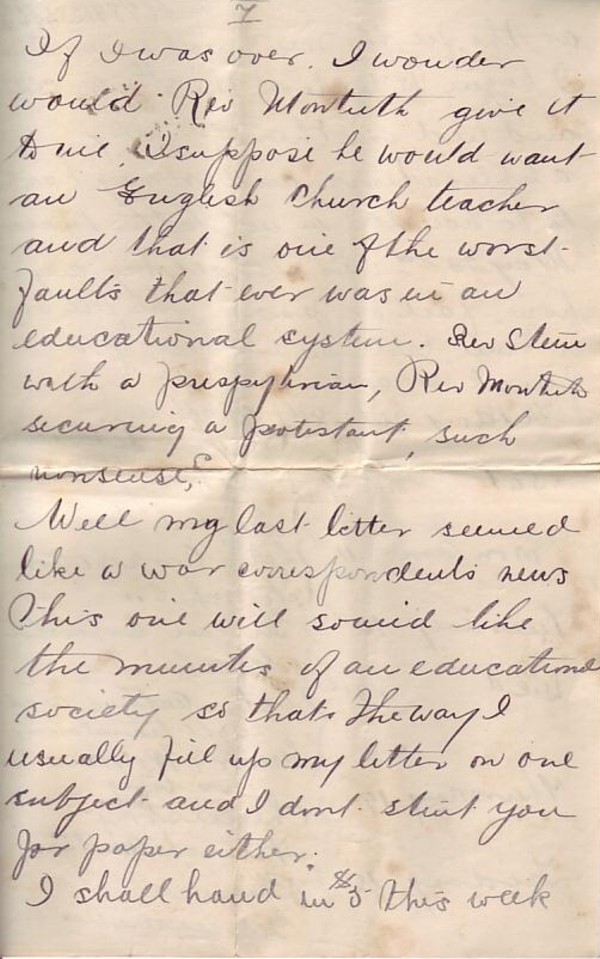 7
If I was over. I wonder
would Rev Monteith give it
to me. I suppose he would want
an English Church teacher
and that is one of the worst
faults that ever was in an
educational system. Rev
with a prespyterian, Rev Monteith
securing a protestant, such
nonsense,
Well my last letter seemed
like a war correspondents news
This one will sound like
the minutes of an educational
society so thats the way I
usually fill up my letter on one
subject and I dont stint you
for paper either.
I shall hand in $5 this week